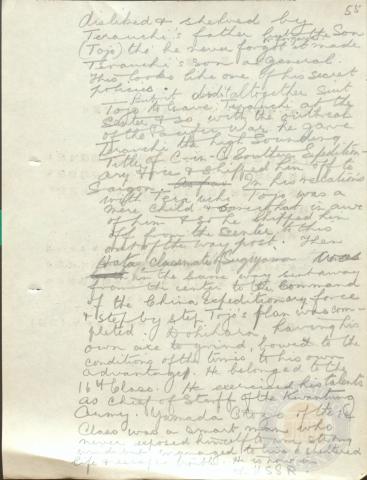 55
disliked & shelved by
Terauchi's father but the son
(Tojo) tho he never forgot it made
Terauchi's son a general.
This looks like one of his secret
policies.
But it didn't altogether suit
Tojo to leave Terauchi at the
Center & so, with the outbreak
of the Pacific War, he gave
Terauchi the high sounding
title of C-in-C Southern Expedition-
ary Force & shipped him off to
Saigon. In his relations
with Terauchi Tojo was a
mere child & somewhat in awe
of him & so he shipped him
off from the center to this
out of the way post. Then
Hata, Classmate of Sugiyama was
in the same way sent away
from the center to the Command
of the China Expeditionary force
& step by step Tojo's plan was com-
pleted. Dohihara having his
own axe to grind, bowed to the
conditions of the times to his own
advantage. He belonged to the
16th Class. He exercised his talents
as Chief of Staff of the Kwantung
Army. Yamada Otozo of the
Class was a smart man who
never exposed himself to any strong
wind but managed to live a sheltered
life & escape trouble. He is now in
USSR.